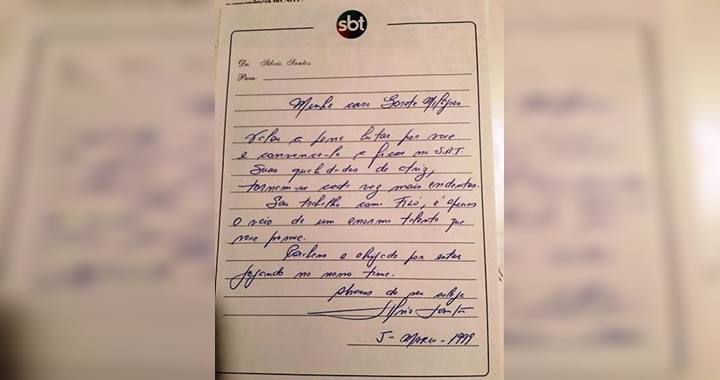 sbt
De: Silvio Santos
Para:
Minha cara Gorete Milagres
Valeu a pena lutar por voce
e convence-la a ficar no S.B.T.
Suas qualidades de atriz,
tornam-se cada vez mais evidentes.
Seu trabalho como Filó, é apenas
o veio de um enorme talento que
voce possue.
Parabens e obrigado por estar
jogando no nosso time.
Abraços do seu colega
Silvio Santos
5 - Março - 1999